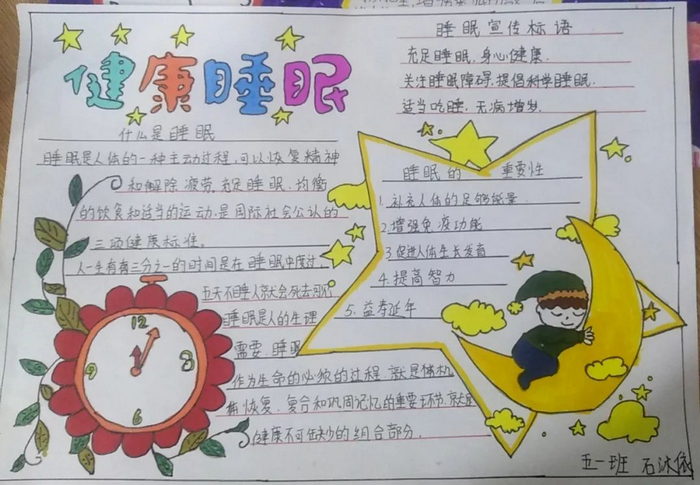 健康睡眠
什么是睡眠
睡眠是人体的一种主动过程,可以恢复精神
和解除疲劳.充足睡眠.均衡
的饮食和适当的运动.是国际社会公认的
三项健康标准。
人一生有三分之一的时间是在睡眠中度过.
五天不睡人就会死去可见
睡眠是人的生理
需要.睡眠
作为生命的必须的过程.就是体机
恢复.复合和巩固记忆的重要环节.就是
健康不可缺少的组合部分.
12
3
6
9
睡眠宣传标语
充足睡眠.身心健康.
关注睡眠障碍.提倡科学睡眠.
适当吃睡.无病增岁.
睡眠的 重要性
1.补充人体的足够能量.
2.增强免疫功能
3.促进人体生长发育
4.提高智力
5.益寿延年
五一班 石沐依